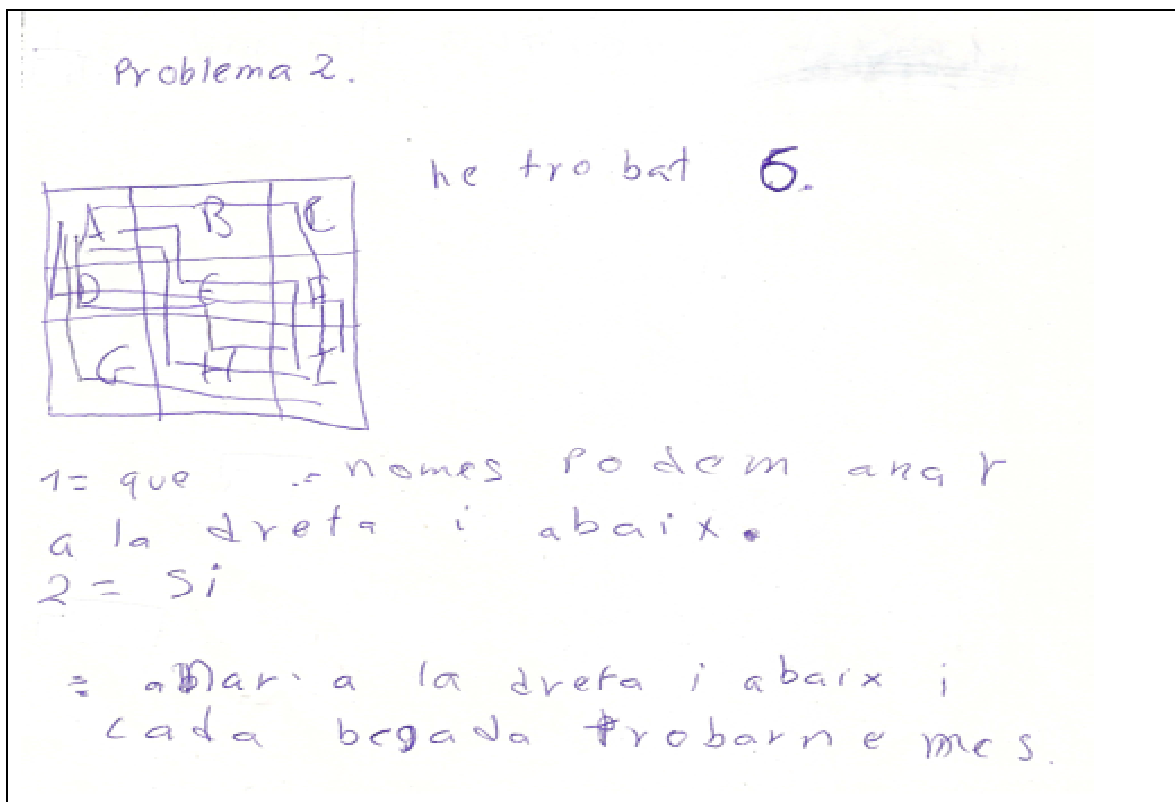 Problema 2.
he trobat 6.
A B C
D E F
G H I
1= que nomes Podem anar
a la dreta i abaix.
2 = Si
= anar a la dreta i abaix i
cada begada trobarne mes.